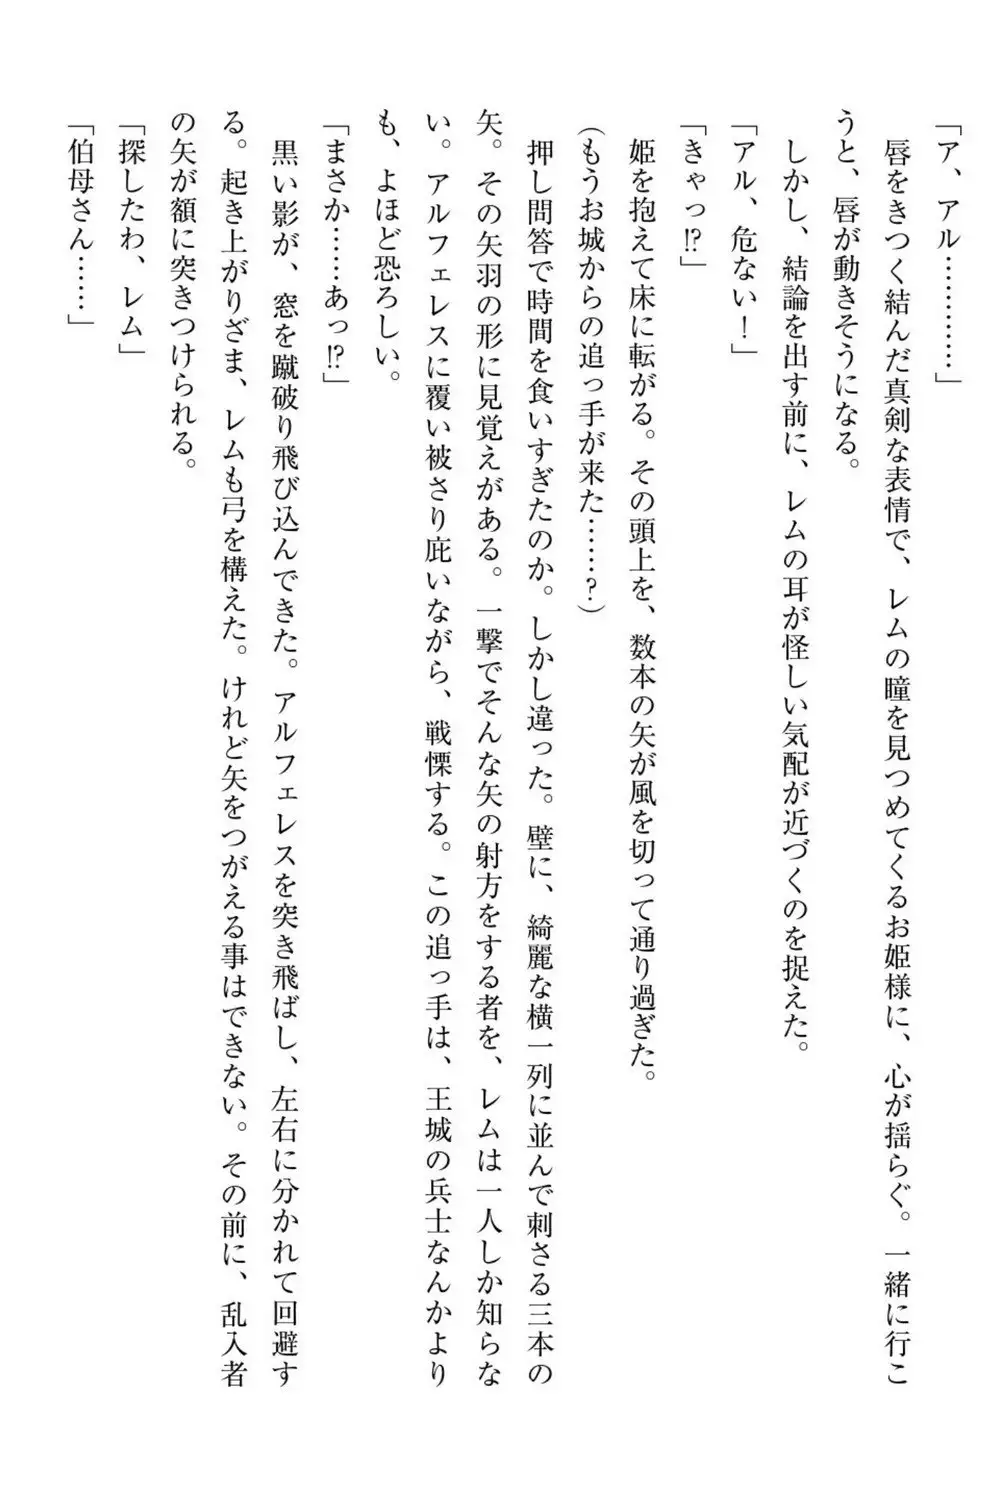 「ア、アル…………」
　唇をきつく結んだ真剣な表情で、レムの瞳を見つめてくるお姫様に、心が揺らぐ。一緒に行こ
うと、唇が動きそうになる。
　しかし、結論を出す前に、レムの耳が怪しい気配が近づくのを捉えた。
「アル、危ない！」
「きゃっ!?」
　姫を抱えて床に転がる。その頭上を、数本の矢が風を切って通り過ぎた。
（もうお城からの追っ手が来た……？）
　押し問答で時間を食いすぎたのか。しかし違った。壁に、綺麗な横一列に並んで刺さる三本の
矢。その矢羽の形に見覚えがある。一撃でそんな矢の射方をする者を、レムは一人しか知らな
い。アルフェレスに覆い被さり庇いながら、戦慄する。この追っ手は、王城の兵士なんかより
も、よほど恐ろしい。
「まさか……あっ!?」
　黒い影が、窓を蹴破り飛び込んできた。アルフェレスを突き飛ばし、左右に分かれて回避す
る。起き上がりざま、レムも弓を構えた。けれど矢をつがえる事はできない。その前に、乱入者
の矢が額に突きつけられる。
「探したわ、レム」
「伯母さん……」